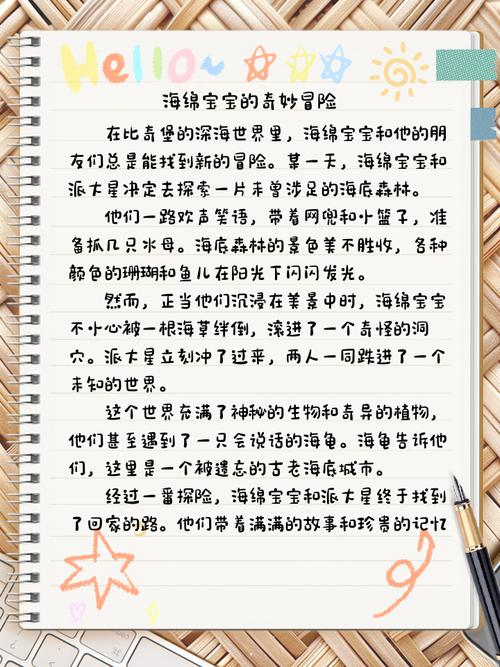 Hello~
海绵宝宝的奇妙冒险
在比奇堡的深海世界里，海绵宝宝和他的朋
友们总是能找到新的冒险。某一天，海绵宝宝和
派大星决定去探索一片未曾涉足的海底森林。
他们一路欢声笑语，带着网兜和小篮子，准
备抓几只水母。海底森林的景色美不胜收，各种
颜色的珊瑚和鱼儿在阳光下闪闪发光。
然而，正当他们沉浸在美景中时，海绵宝宝
不小心被一根海草绊倒，滚进了一个奇怪的洞
穴。派大星立刻冲了过来，两人一同跌进了一个
未知的世界。
这个世界充满了神秘的生物和奇异的植物，
他们甚至遇到了一只会说话的海龟。海龟告诉他
们，这里是一个被遗忘的古老海底城市。
经过一番探险，海绵宝宝和派大星终于找到
了回家的路。他们带着满满的故事和珍贵的记忆